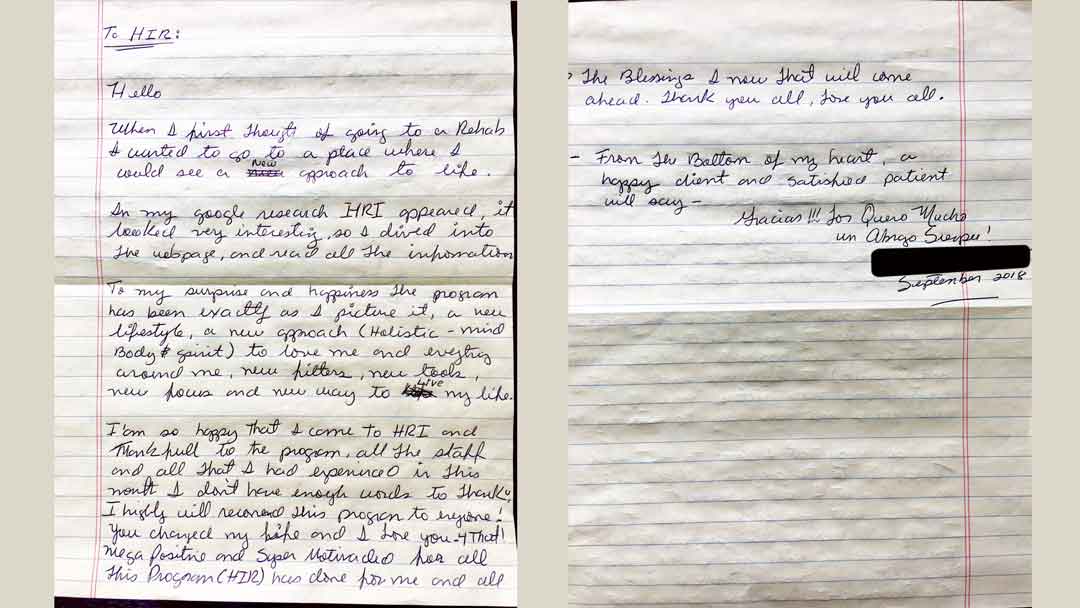 To HIR:
Hello
When I first thought of going to a Rehab
I wanted to go to a place where I
would see a New approach to life.
In my google research HRI appeared, it
looked very interesting, so I dived into
the webpage, and read all the information
To my surprise and happiness the program
has been exactly as I picture it, a new
lifestyle, a new approach (Holistic - mind
Body & spirit) to love me and everything
around me, new filters, new tools,
new focus and new way to Live my life.
I'am so happy that I came to HRI and
Thankfull to the program, all the staff
and all that I had experienced in this
month I don't have enough words to Thank u,
I highly will recomend this program to everyone!
You changed my life and I love you 4 That!
Mega Positive and Super Motivaded for all
this Program (HIR) has done for me and all
The Blessings I now that will come
ahead. Thank you all, love you all.
- From the Bottom of my heart, a
happy client and satisfied patient
will say -
Gracias!!! Los Quero Mucho
un Abrazo Siempre!
September 2018